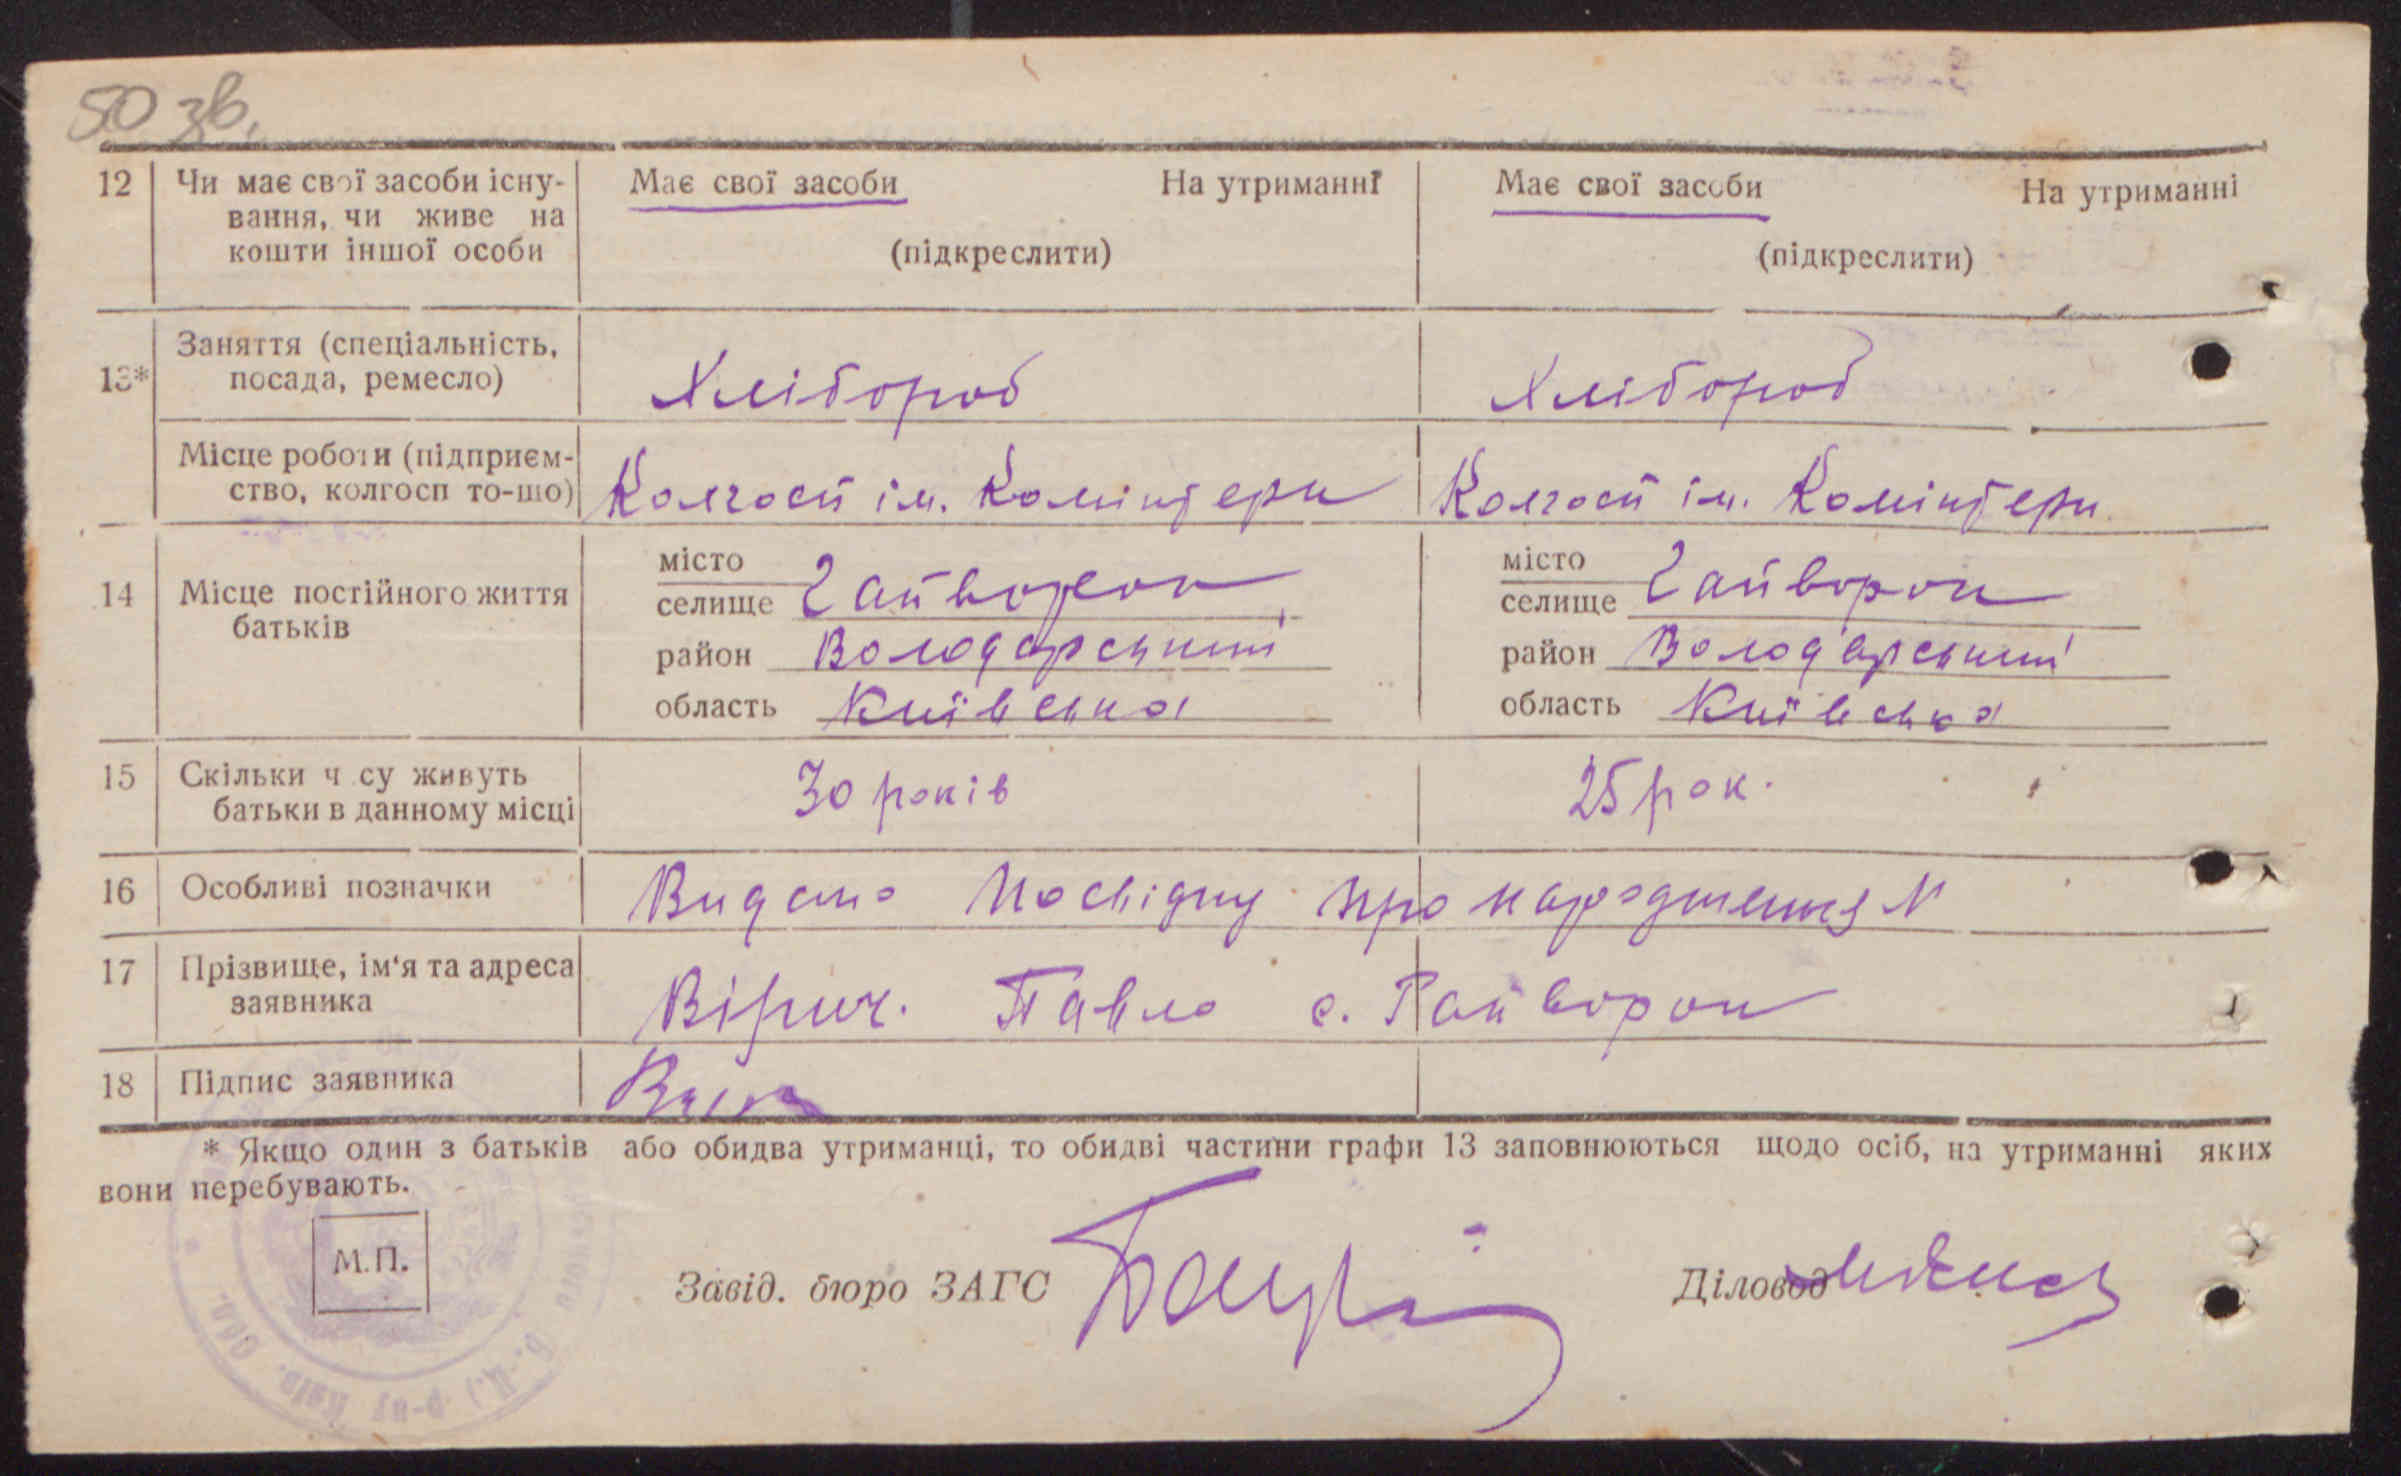 50 зв.
12 Чи має свої засоби існу- Має свої засоби На утриманні Має свої засоби На утриманні
вання, чи живе на
кошти іншої особи (підкреслити) (підкреслити)
13* Заняття (спеціальність,
посада, ремесло) Хлібороб Хлібороб
Місце роботи (підприєм-
ство, колгосп то-що) Колгосп ім. Комінтерн Колгосп ім. Комінтерн
14 Місце постійного життя
батьків
місто
селище Гайворон
район Володарський
область Київська
місто
селище Гайворон
район Володарський
область Київська
15 Скільки ч су живуть
батьки в данному місці 30 років 25 рок.
16 Особливі позначки Видано посвідку про народження №
17 Прізвище, ім'я та адреса
заявника Вірич. Павло с. Гайворон
18 Підпис заявника
* Якщо один з батьків або обидва утриманці, то обидві частини графи 13 заповнюються щодо осіб, на утриманні яких
вони перебувають.
М.П.
Завід. бюро ЗАГС Діловод